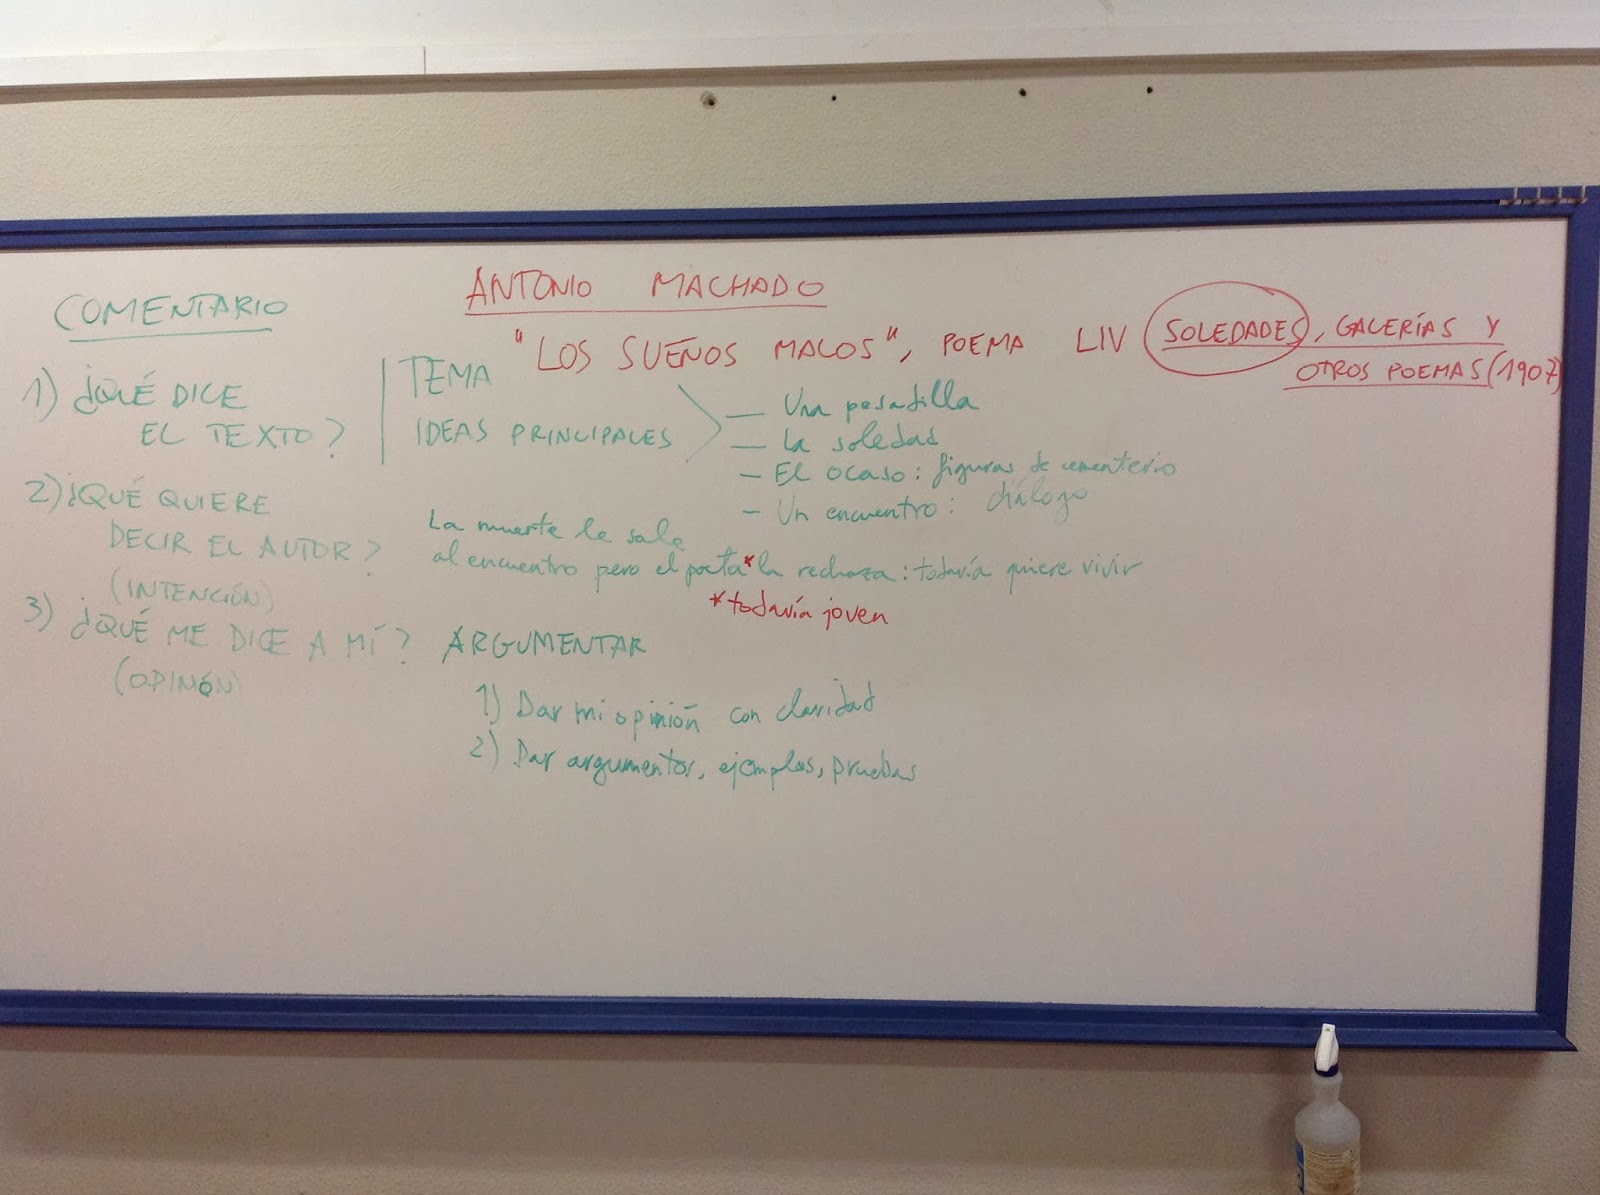 COMENTARIO
ANTONIO MACHADO
"LOS SUEÑOS MALOS", POEMA LIV SOLEDADES, GALERÍAS Y
OTROS POEMAS (1907)
1) ¿QUÉ DICE
EL TEXTO?
TEMA
IDEAS PRINCIPALES
— Una pesadilla
— La soledad
— El ocaso: figuras de cementerio
— Un encuentro: diálogo
2) ¿QUÉ QUIERE
DECIR EL AUTOR?
(INTENCIÓN)
La muerte le sale
al encuentro pero el poeta* la rechaza: todavía quiere vivir
*todavía joven
3) ¿QUÉ ME DICE A MÍ?
(OPINIÓN)
ARGUMENTAR
1) Dar mi opinión con claridad
2) Dar argumentos, ejemplos, pruebas